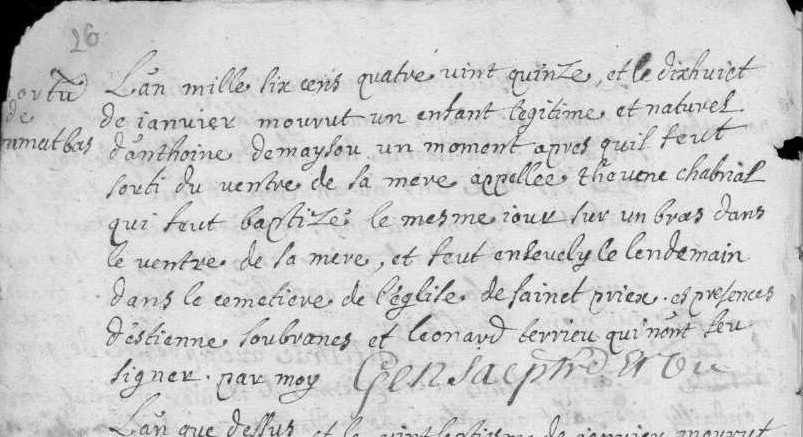 26
L'an mille six cens quatre vint quinze, et le dixhuict
de ianvier mourut un enfant legitime et naturel
de
d'anthoine demaysou un moment apres quil feut
sorti du ventre de sa mere appellee thevene chabrial
qui feut baptizé le mesme iour sur un bras dans
le ventre de sa mere, et feut ensevely le lendemain
dans le cemetiere de l'église de sainct priex. es presences
d'éstienne soubranes et leonard terrieu qui n'ont seu
signer. par moy
L'an que dessus et le de ianvier mourut